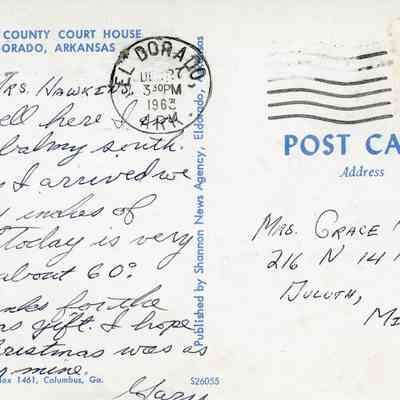 COUNTY COURT HOUSE
DORADO, ARKANSAS
EL DORADO,
DEC 27
3 30 PM
1963
ARK.
Mrs. Hawkin
ell here I am
balmy south.
I arrived we
inches of
Today is very
about 60°.
nks for the
as gift. I hope
hristmas was as
y mine.
Gary
Box 1461, Columbus, Ga.
S26055
Published by Shannon News Agency, Eldorado, Arkansas
POST CA
Address
Mrs. Grace
216 N 14
Duluth,
Mi